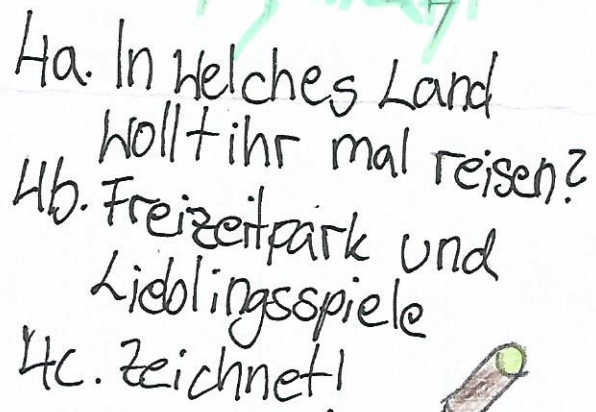 4a. In welches Land
wollt ihr mal reisen?
4b. Freizeitpark und
Lieblingsspiele
4c. Zeichnet!